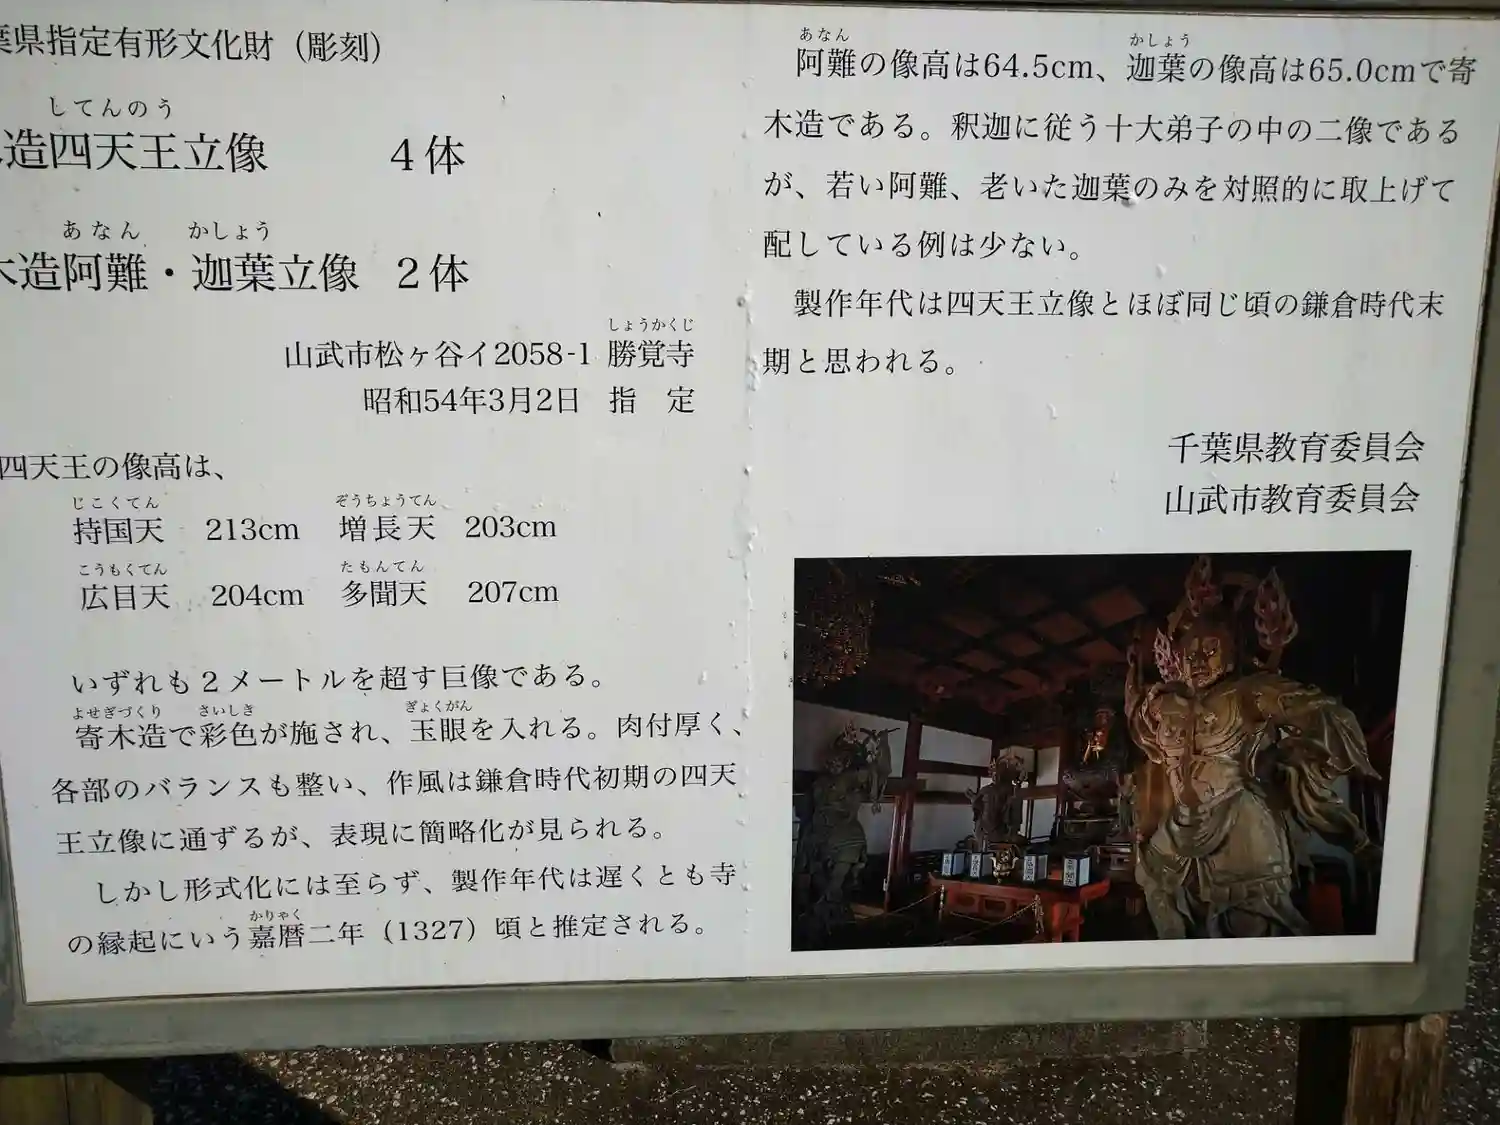 葉県指定有形文化財（彫刻）
してんのう
造四天王立像 4体
あなん かしょう
木造阿難・迦葉立像 2体
しょうかくじ
山武市松ヶ谷イ2058-1 勝覚寺
昭和54年3月2日 指 定
四天王の像高は、
じこくてん ぞうちょうてん
持国天 213cm 増長天 203cm
こうもくてん たもんてん
広目天 204cm 多聞天 207cm
いずれも2メートルを超す巨像である。
よせぎづくり さいしき ぎょくがん
寄木造で彩色が施され、玉眼を入れる。肉付厚く、
各部のバランスも整い、作風は鎌倉時代初期の四天
王立像に通ずるが、表現に簡略化が見られる。
しかし形式化には至らず、製作年代は遅くとも寺
かりゃく
の縁起にいう嘉暦二年（1327）頃と推定される。
あなん かしょう
阿難の像高は64.5cm、迦葉の像高は65.0cmで寄
木造である。釈迦に従う十大弟子の中の二像である
が、若い阿難、老いた迦葉のみを対照的に取上げて
配している例は少ない。
製作年代は四天王立像とほぼ同じ頃の鎌倉時代末
期と思われる。
千葉県教育委員会
山武市教育委員会